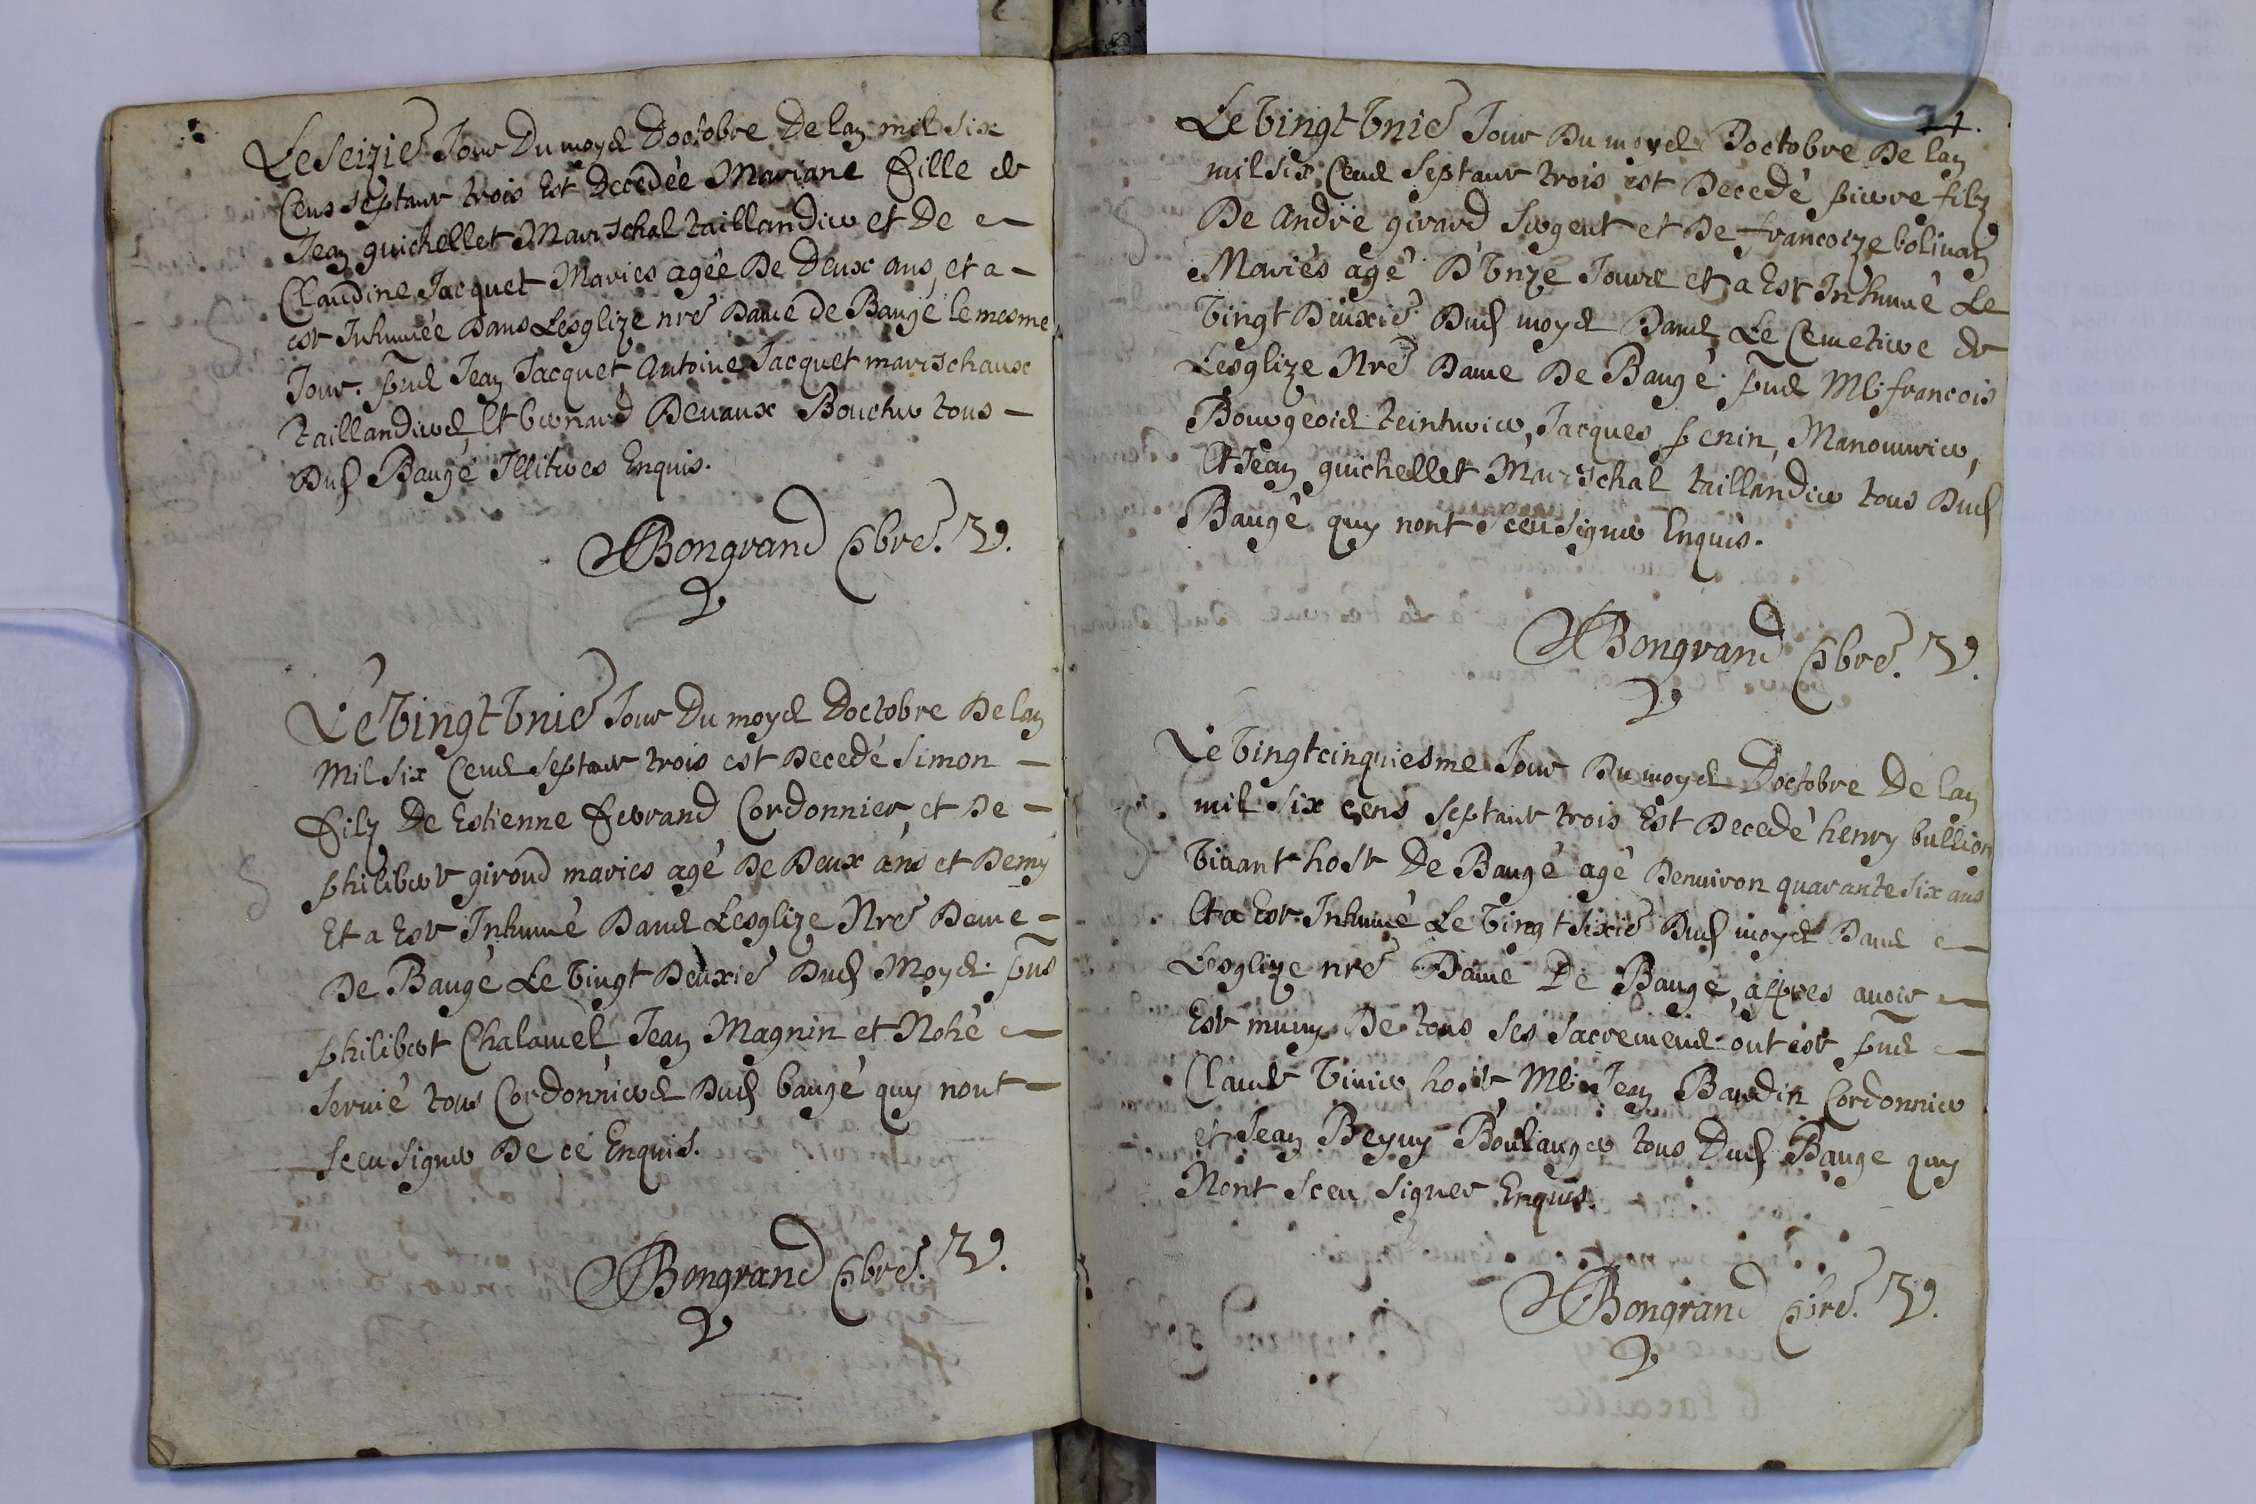 Le seizie Jour Du moys Doctobre De lan mil six
Cens septante trois Est Decedée Mariane fille de
Jean guichellet Marischal taillandier et De
Claudine Jacquet Maries agée De Deux ans, et a
este Inhumée Dans Lesglize nre Dame de Baugé le mesme
Jour. pns Jean Jacquet, Antoine Jacquet marischaux
taillandiers, Et bernard Devaux Boucher tous
Dud Baugé Illiteres Enquis.
Bongrand pbre. V.
Le Vingt Vnie Jour Du moys Doctobre De lan
Mil six Cens septante trois est Decedé Simon
filz De Estienne ferrand Cordonnier, et De
philiberte giroud maries agé De Deux ans et Demy
Et a Este Inhumé Dans Lesglize Nre Dame
De Baugé Le Vingt Deuxie Dud Moys. pns
philibert Chalamel, Jean Magnin et Nohé
servié tous Cordonniers Dud baugé quy nont
sceu signer De ce Enquis.
Bongrand pbre. V.
Le Vingt Vnie Jour Du moys Doctobre De lan
mil six Cens septante trois est Decedé pierre filz
De andré girard sergent et De francoize bolivan
Mariés agé D'Vnze Jours et a Este Inhumé Le
Vingt Deuxie Dud moys Dans Le Cemetiere de
Lesglize Nre Dame De Baugé. pns Mre francois
Bourgeois teinturier, Jacques penin, Manouvrier,
Et Jean guichellet Marischal taillandier tous Dud
Baugé quy nont sceu signer Enquis.
Bongrand pbre. V.
Le Vingtcinquiesme Jour Du moys Doctobre De lan
mil six cens septante trois Est Decedé henry bullion
Vivant hoste De Baugé agé Denviron quarante six ans
Et a Este Inhumé Le Vingt sixie Dud moys Dans
Lesglize nre Dame De Baugé, apres avoir
Este muny De tous ses sacremens ont este pns
Claude Vivier hoste, Mre Jean Baudin Cordonnier
et Jean Beyuy Boulanger tous Dud Bauge quy
Nont sceu signer Enquis.
Bongrand pbre. V.